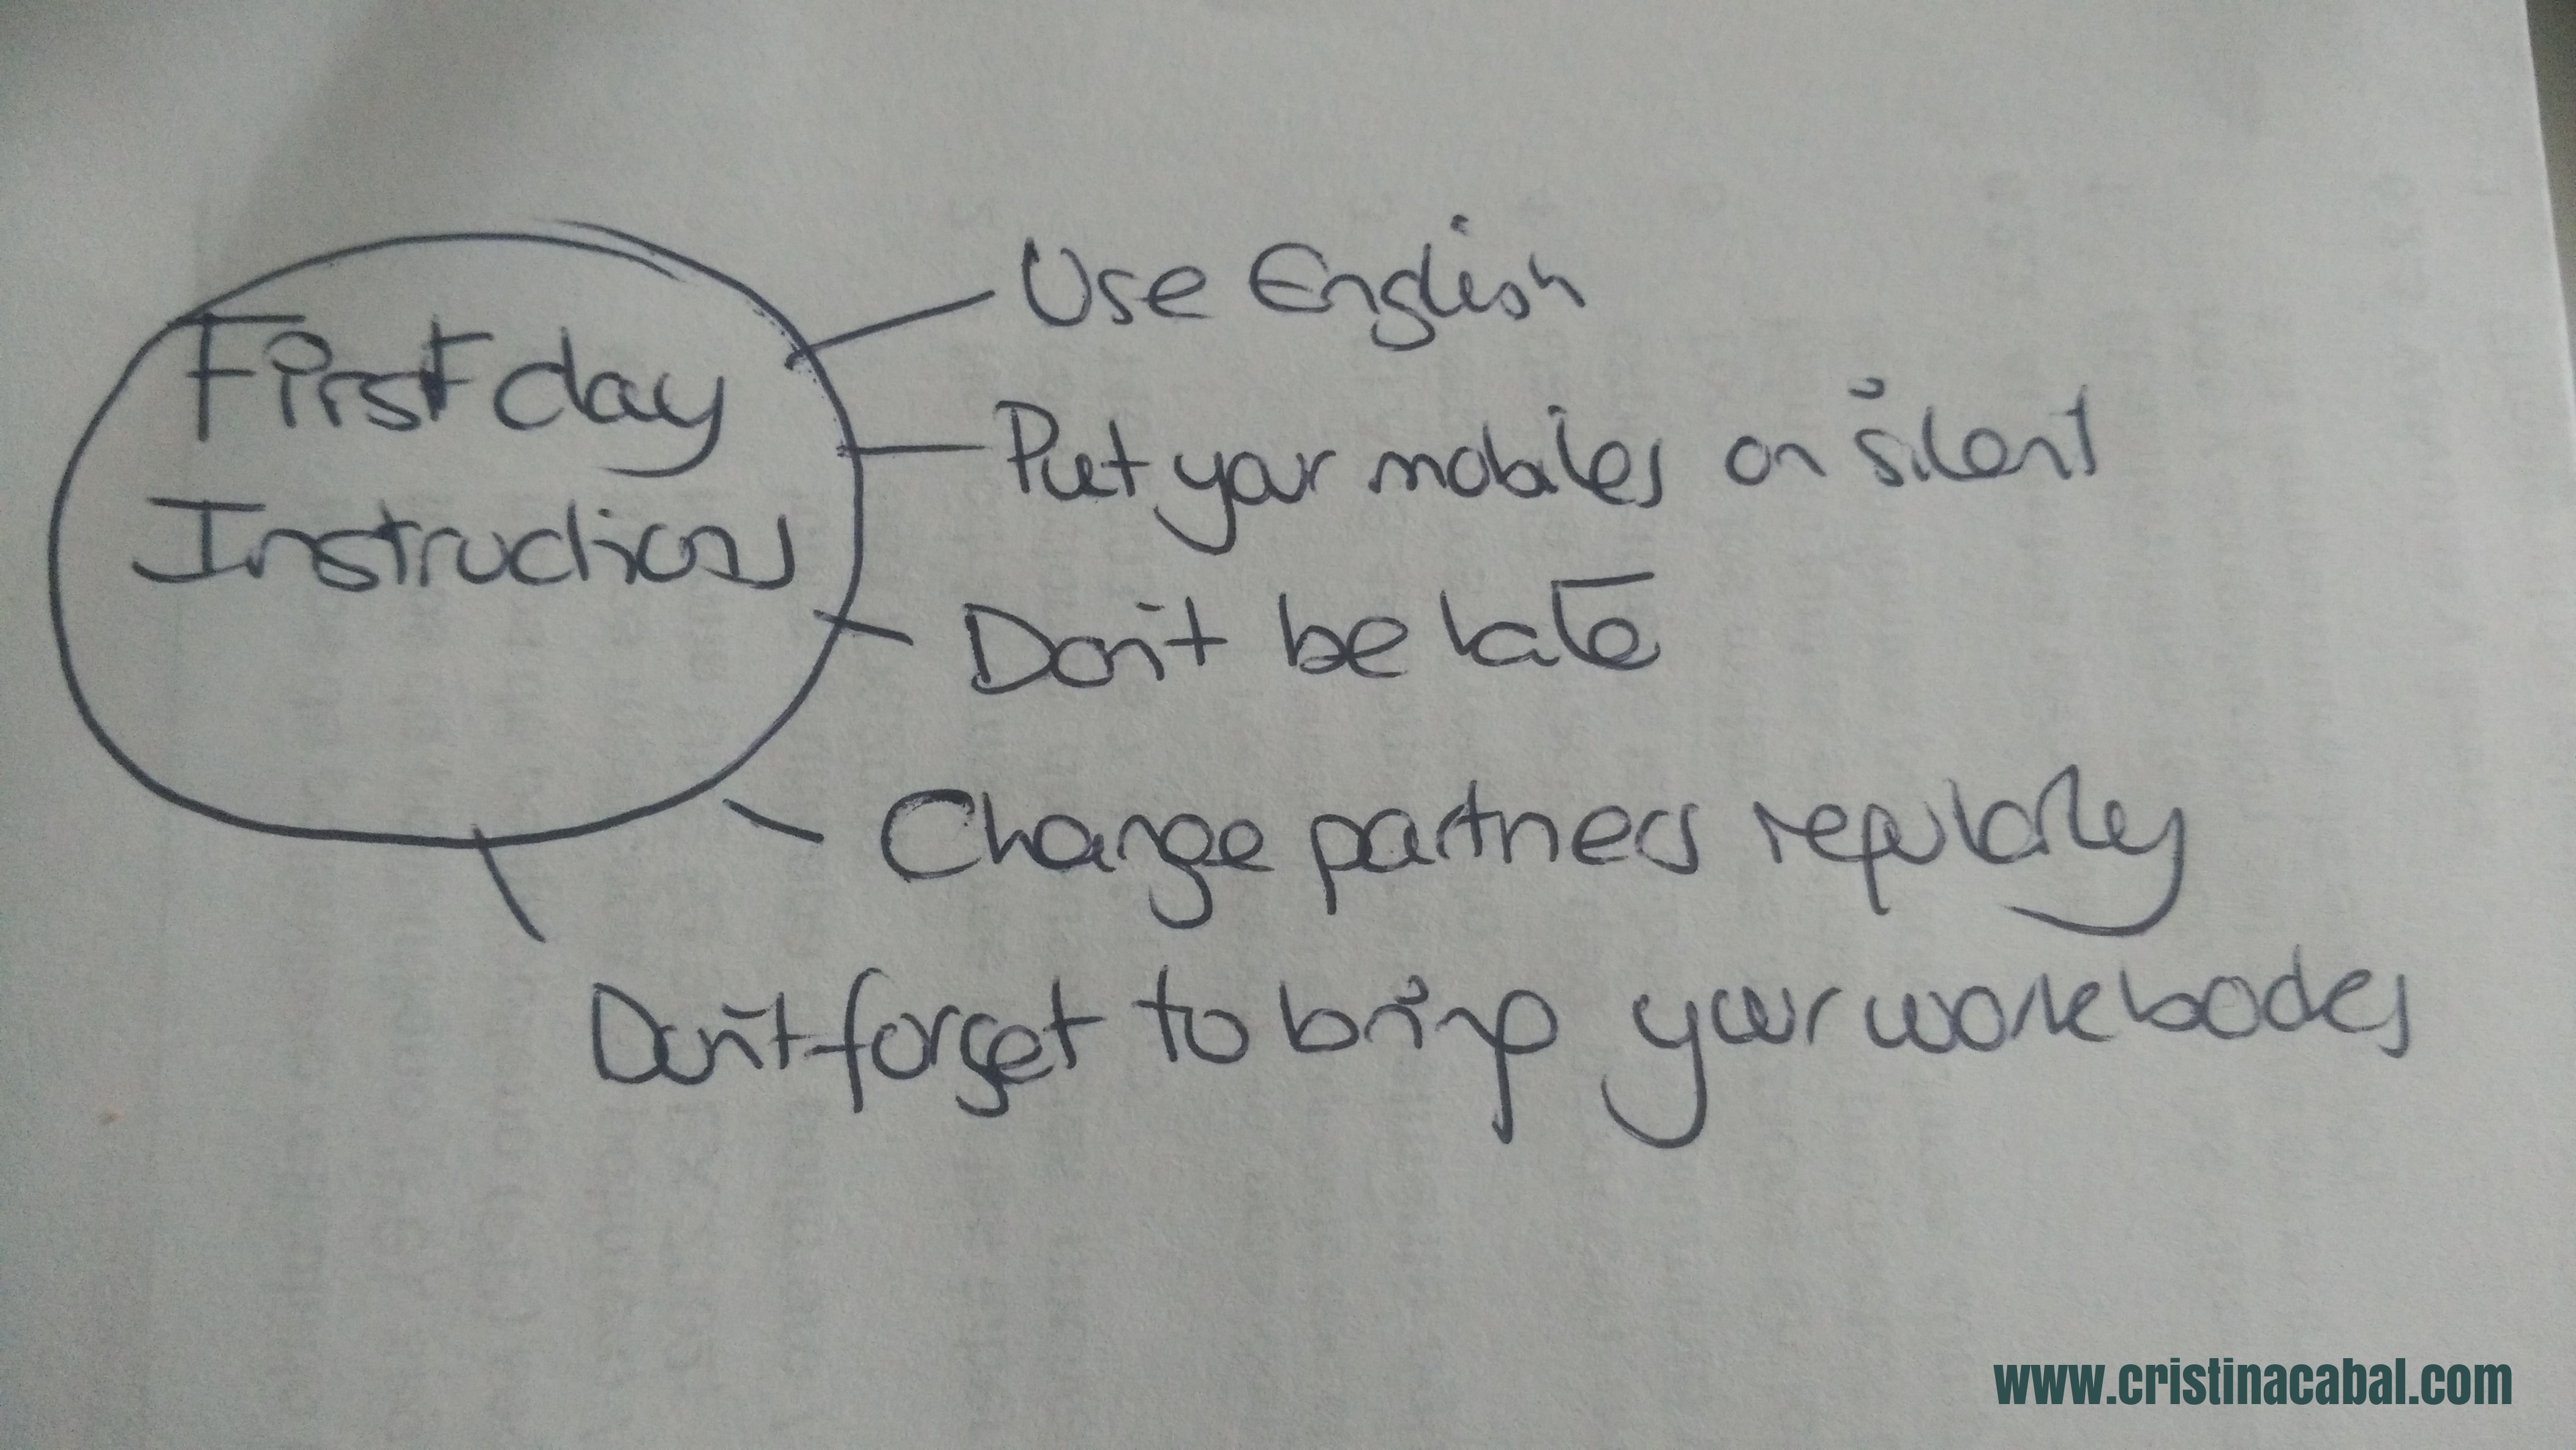 First day
Instructions
Use English
Put your mobiles on silent
Don't be late
Change partners regularly
Don't forget to bring your workbooks
www.cristinacabal.com